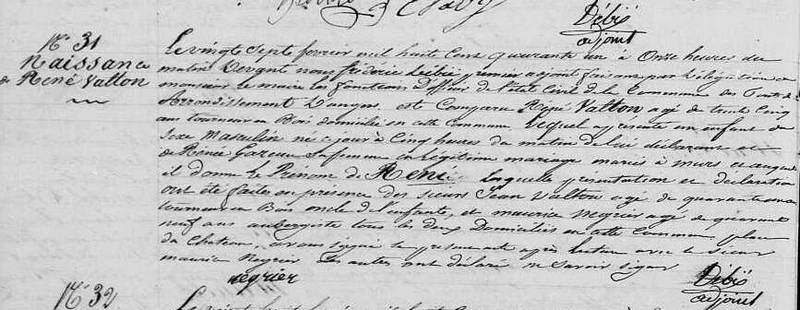 Débié
adjoint
N° 31
Naissance
de René Vallon
Le vingt Sept février mil huit Cent quarante un à Onze heures du
matin Devant nous frédéric Débié premier adjoint faisant par Délégation de
monsieur le maire les fonctions d'officier de l'état Civil de la Commune des Ponts de Cé
Arrondissement D'angers est Comparu René Vallon agé de trente Cinq
ans tourneur en Bois domicilié en cette commune Lequel a présenté un enfant du
Sexe Masculin né ce jour à Cinq heures du matin de lui déclarant et
de Renée Gazeau Sa femme en légitime mariage mariés à murs et auquel
il donne le Prénom de René laquelle présentation et déclaration
ont été faites en présence des sieurs Jean Vallon agé de quarante
tourneur en Bois oncle de l'enfant, et maurice Negrier agé de quarante
neuf ans aubergiste tous les deux Domiciliés en cette Commune place
du Chateau, et ont signé le présent acte après lecture avec le Sieur
maurice Negrier Les autres ont déclaré ne Savoir signer
Negrier
Débié
adjoint
N° 32